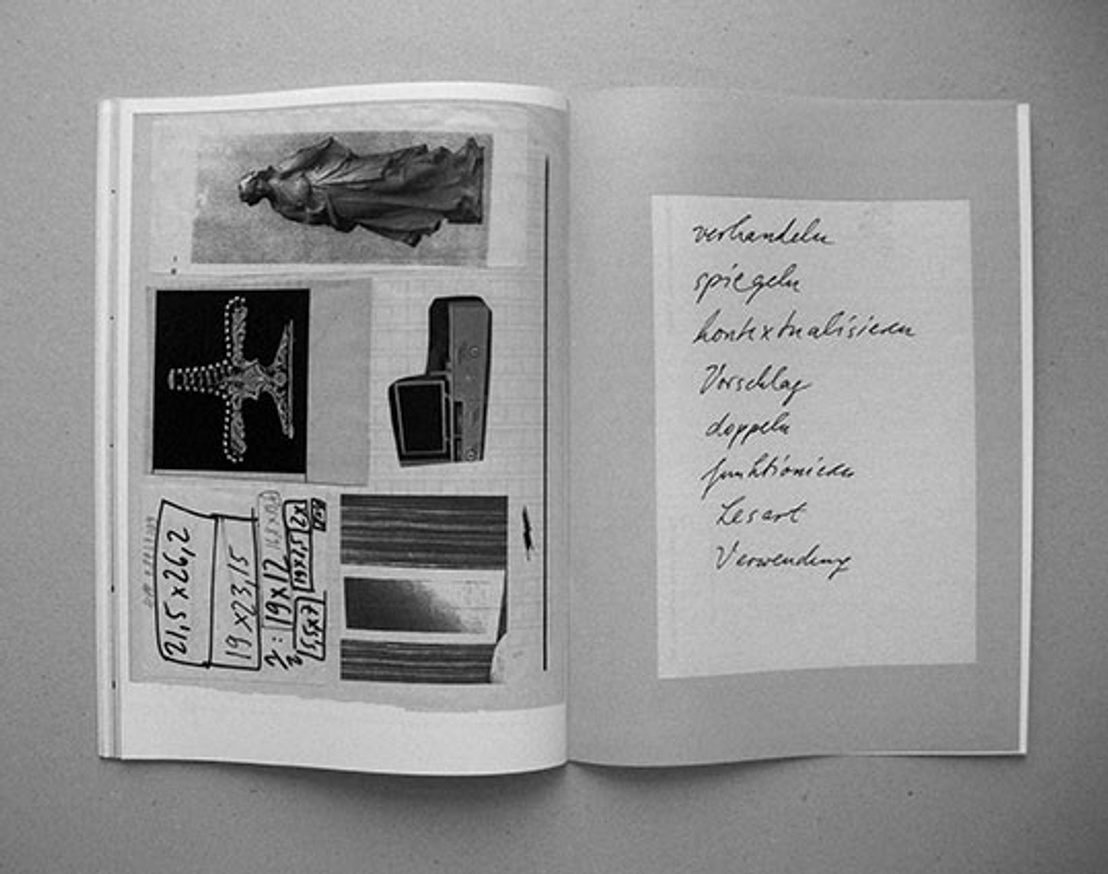 21,5 x 26,2
19 x 23,15
19 x 12
verhandeln
spiegeln
kontextualisieren
Vorschlag
doppeln
funktionieren
Lesart
Verwendung